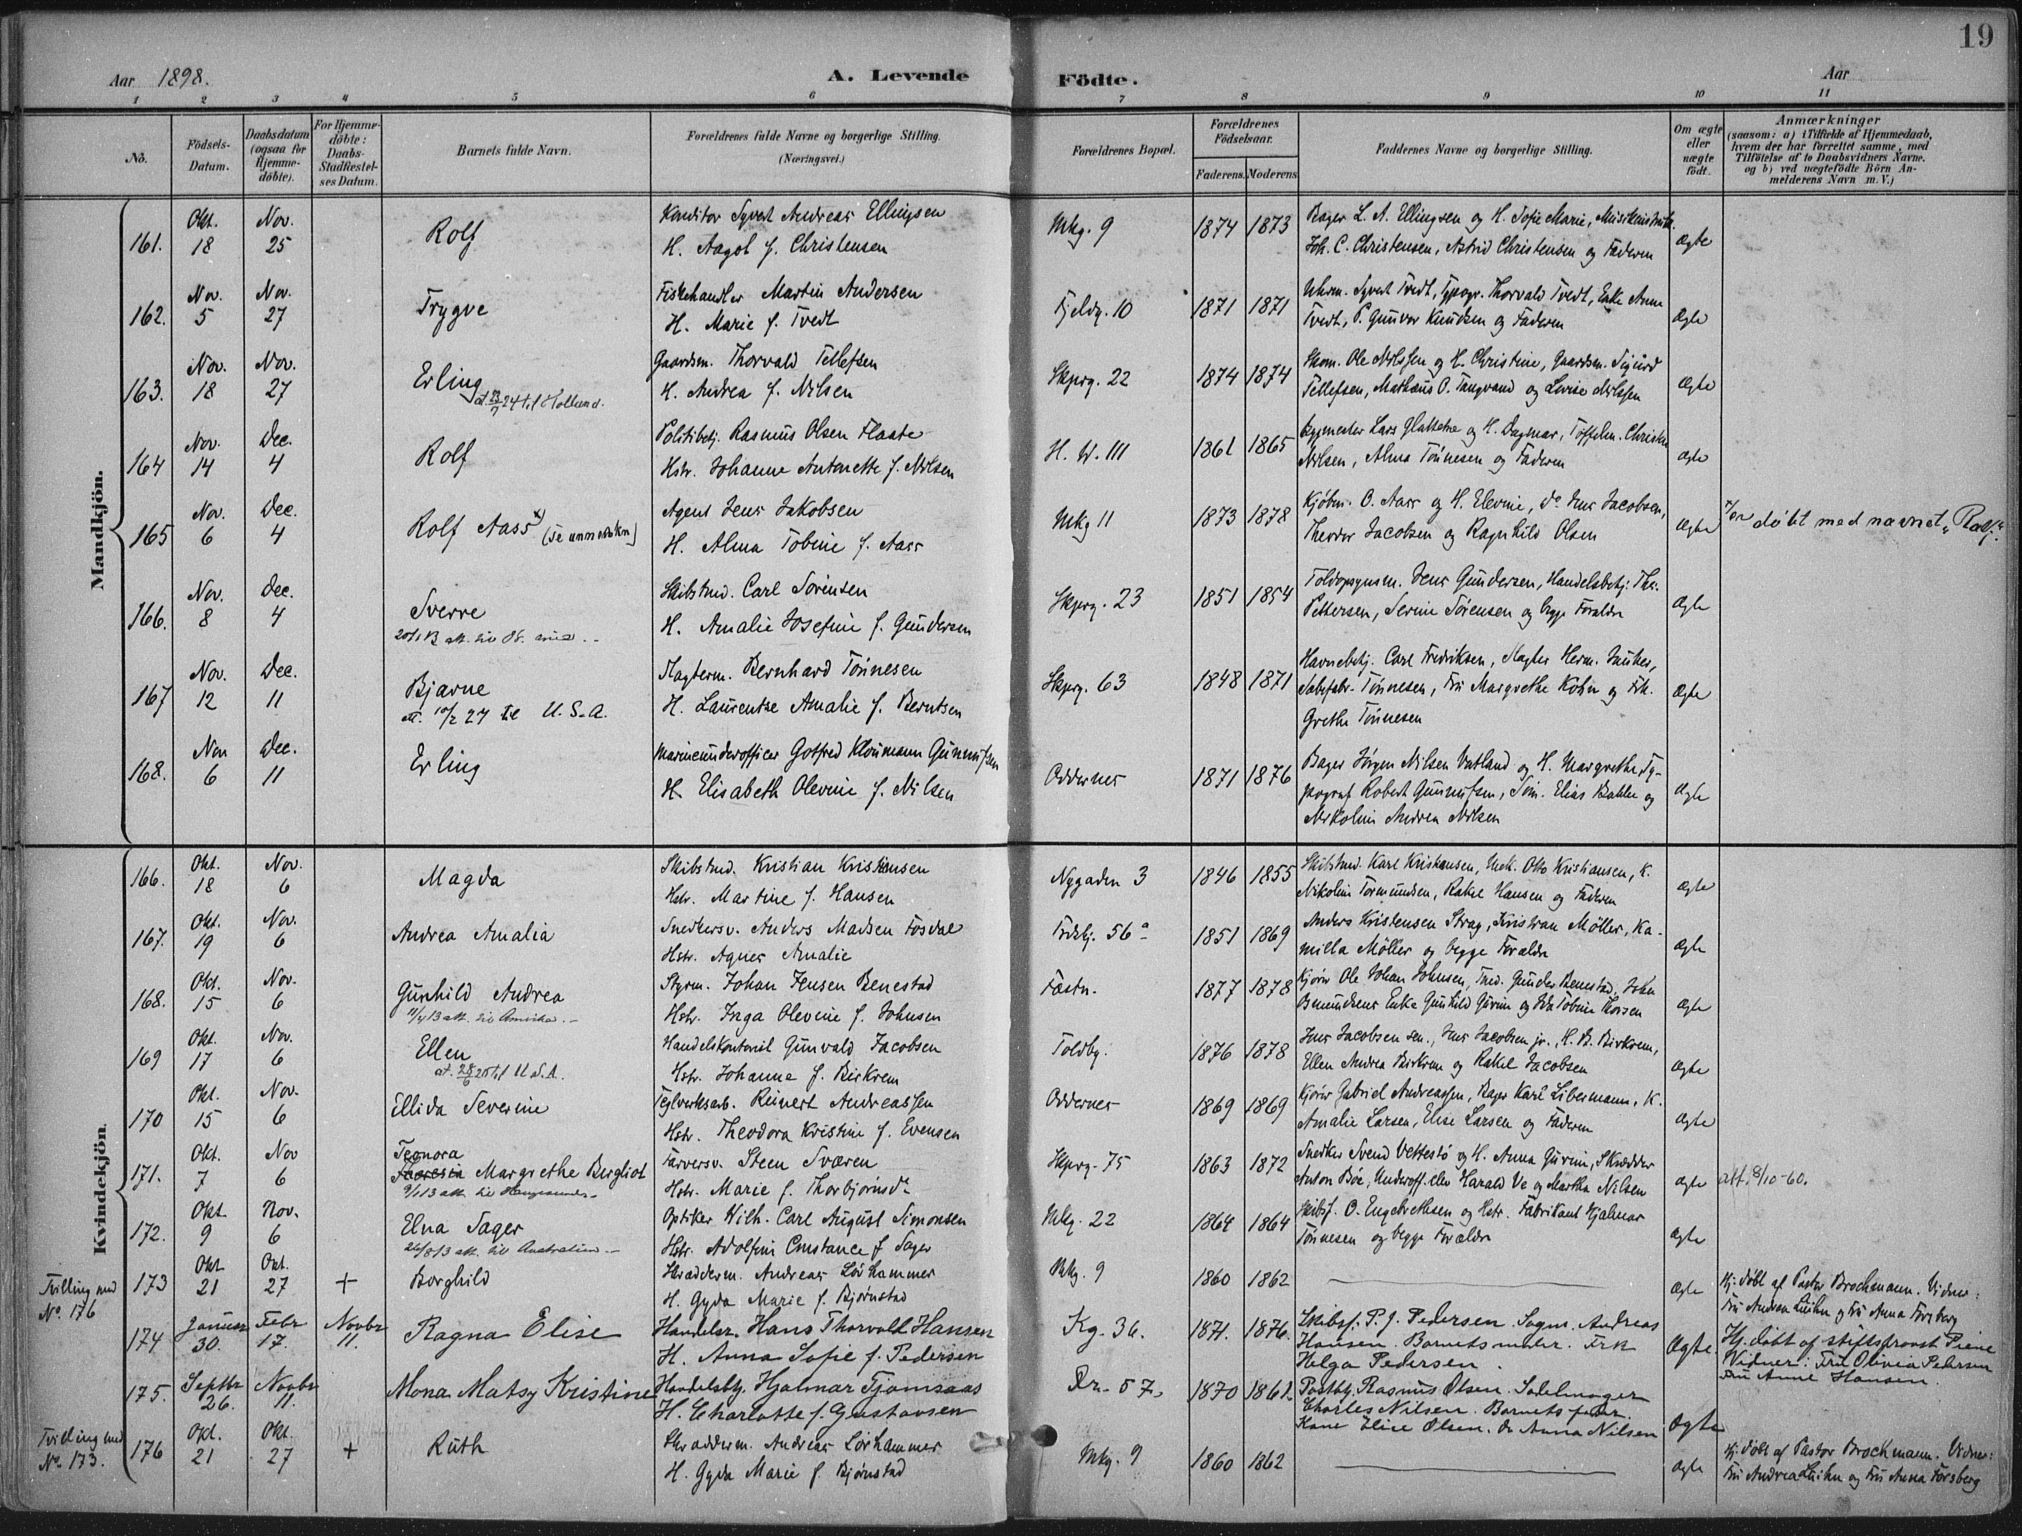 19
Aar 1898.
A. Levende Födte.
Aar
1 2 3 4 5 6 7 8 9 10 11
No.
Födsels-Datum.
Daabsdatum (ogsaa for Hjemme-döbte).
For Hjemme-döbte: Daabs-Stadfæstel-ses Datum.
Barnets fulde Navn.
Forældrenes fulde Navne og borgerlige Stilling. (Næringsvei.)
Forældrenes Bopæl.
Forældrenes Födselsaar.
Faderens. Moderens.
Faddernes Navne og borgerlige Stilling.
Om ægte eller uægte födt.
Anmærkninger
(saasom: a) i Tilfælde af Hjemmedaab, hvem der har forrettet samme, med Tilföielse af to Daabsvidners Navne. og b) ved uægtefödte Börn An-melderens Navn m.V.)
Mandkjön.
161. Okt. 18 Nov. 25 Rolf
Konditor Syvert Andreas Ellingsen
H. Aagot f. Christensen
Mkg. 9 1874 1873
Bager L. A. Ellingsen og H. Sofie Marie,
Joh. C. Christensen, Astrid Christensen og Faderen
Ægte
162. Nov. 5 Nov. 27 Trygve
Fiskehandler Martin Andersen
H. Marie f. Tvedt
Fjeldg. 10 1871 1871
Syvert Tvedt, Typogr. Thorvald Tvedt, Enke Anne
Tvedt, P. Gunvor Knudsen og Faderen
Ægte
163. Nov. 18 Nov. 27 Erling
at. 23/7 24 til Holland.
Gaardsm. Thorvald Tellefsen
H. Andrea f. Nilsen
Skprg. 22 1874 1874
Skom. Ole Nilssen og H. Christine, Gaardsm. Sigurd
Tellefsen, Mathæus O. Tangvand og Lovise Nilssen
Ægte
164 Nov. 14 Dec. 4 Rolf
Politibetj. Rasmus Olsen Flaate
Hstr. Johanne Antonette f. Nilsen
H. W. III 1861 1865
Bygmester Lars Glattetre og H. Dagmar,
Nilsen, Alma Tönnesen og Faderen
Ægte
165 Nov. 6 Dec. 4 Rolf Aass x) (se anmærkn)
Agent Jens Jakobsen
H. Alma Tobine f. Aass
Mkg 11 1873 1878
Kjøbm. O. Aass og H. Elevine, do Jens Jacobsen,
Theodor Jacobsen og Ragnhild Olsen
Ægte
x) er döbt med navnet "Rolf".
166. Nov. 8 Dec. 4 Sverre
Skibstmd. Carl Sörensen
H. Amalie Josefine f. Gundersen
Skprg. 23 1851 1854
Toldopsynsm. Jens Gundersen, Handelsbetj. Th.
Pettersen, Serine Sørensen og begge Forældre
Ægte
167 Nov. 12 Dec. 11 Bjarne
att. 10/2 27 til U. S. A.
Slagterm. Bernhard Tönnesen
H. Laurentze Amalie f. Berntsen
Skprg. 63 1848 1871
Havnebetj. Carl Fredriksen, Slagter Herm.
Sæbefabr. Tönnesen, Fru Margrethe Kohn og Frk.
Grethe Tönnesen
Ægte
168. Nov 6 Dec. 11 Erling
Marineunderofficer Gotfred Kloumann Gunnufsen
H. Elisabeth Olevine f. Nilsen
Oddernes 1871 1876
Bager Jörgen Nilsen Vatland og H. Margrethe, Ty-
pograf Robert Gunnufsen, Elias Bakke og
Nikoline Andrea Nilsen
Ægte
Kvindekjön.
166. Okt. 18 Nov. 6 Magda
Skibstmd. Kristian Kristiansen
Hstr. Martine f. Hansen
Nygaden 3 1846 1855
Skibstmd. Karl Kristiansen, Otto Kristiansen, K.
Nikoline Tormundsen, Rakel Hansen og Faderen
Ægte
167. Okt. 19 Nov. 6 Andrea Amalia
Snedkersv. Anders Madsen Fosdal
Hstr. Agnes Amalie
56 a 1851 1869
Anders Kristensen Stray, Kristian Møller, Ka-
milla Møller og begge Forældre
Ægte
168. Okt. 15 Nov. 6 Gunhild Andrea
11/4 13 att. til Amerika.
Styrm. Johan Jensen Benestad
Hstr. Inga Olevine f. Johnsen
Fæstn. 1877 1878
Kjörer Ole Johan Johnsen, Tmd. Gunder Benestad,
Enke Gunhild Gurine og Ida Tobine Thorsen
Ægte
169 Okt. 17 Nov. 6 Ellen
at. 28/6 20 til U.S.A.
Handelskontorist Gunvald Jacobsen
Hstr. Johanne f. Birkrem
Toldbg. 1876 1878
Jens Jacobsen sen., Jens Jacobsen jr., H. B. Birkrem,
Ellen Andrea Birkrem og Rakel Jacobsen
Ægte
170 Okt. 15 Nov. 6 Ellida Severine
Teglverksarb. Reinert Andreassen
Hstr. Theodora Kristine f. Evensen
Oddernes 1869 1869
Kjörer Gabriel Andreassen, Bager Karl Libermann, K.
Amalie Larsen, Elise Larsen og Faderen
Ægte
171. Okt. 7 Nov 6 Teonora
Margrethe Bergliot
Farversv. Steen Sværen
Hstr. Marie f. Thorbjørnsd.
Skprg. 75 1863 1872
Snedker Svend Vettestö og H. Anna Gurine, Skrædder
Anton Böe, Underoff.elev Harald Ve og Martha Nilsen
Ægte
att. 18/10-60.
172. Okt 9 Nov. 6 Elna Sager
26/8 13 att. til Australien
Optiker Wilh. Carl August Simonsen
Hstr. Adolfine Constance f. Sager
Mkg. 22 1864 1864
Skibsf. O. Engebrethsen og Hstr. Fabrikant Hjalmar
Tönnesen og begge Forældre
Ægte
Tvilling med No. 176
173 Okt 21 Okt. 27 + Borghild
Skrædderm. Andreas Lörhammer
H. Gyda Marie f. Bjørnstad
Mkg. 9 1860 1862
Ægte
Hj. döbt af Pastor Brochmann. Vidner:
Fru Andrea Luihn og Fru Anna Forsberg
174 Januar 30. Febr 17. Novbr 11. Ragna Elise
Handelsr. Hans Thorvald Hansen
H. Anna Sofie f. Pedersen
Kg. 36. 1871. 1876.
Skibsf. P. J. Pedersen. Sagm. Andreas
Hansen. Barnets moder. Frk
Helga Pedersen.
Ægte.
Hj. döbt af stiftsprovst Piene
Vidner: Fru Olivia Pedersen
Fru Anne Hansen.
175. Septbr 26. Novbr 11. Mona Matsy Kristine
Handelsbtj. Hjalmar Tjomsaas
H. Charlotte f. Gustavsen
Dr. 57. 1870 1861.
Postbtj. Rasmus Olsen. Sadelmager
Charles Nilsen. Barnets fader
Kone Elise Olsen. Do Anna Nilsen
Ægte
Tvilling med No. 173.
176 Okt. 21 Okt. 27 + Ruth
Skrædderm. Andreas Lörhammer
H. Gyda Marie f. Bjørnstad
Mkg. 9 1860 1862
Ægte
Hj. döbt af Pastor Brochmann. Vidner:
Fru Andrea Luihn og Fru Anna Forsberg